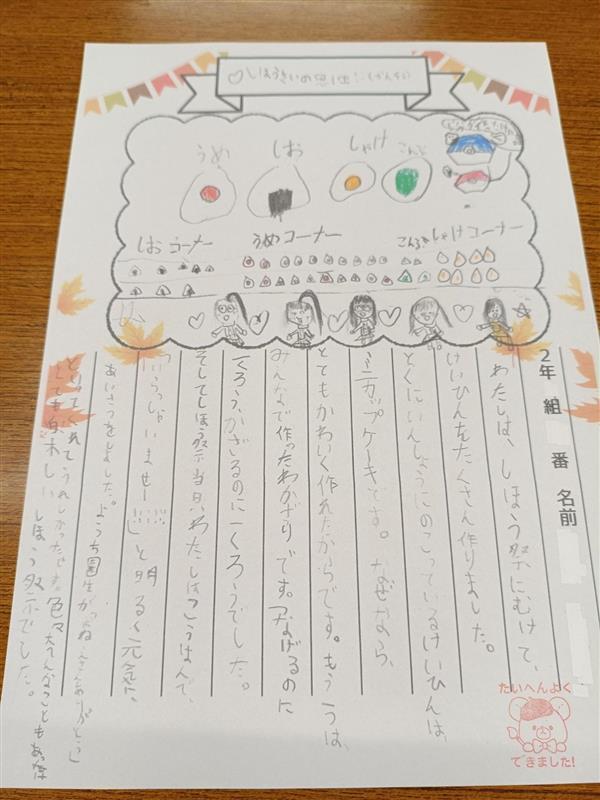 ♡しほうさいの思い出!
うめ
しお
しゃけ
こんぶ
しおコーナー
うめコーナー
こんぶ
しゃけコーナー
2年 組 番 名前
わたしは、しほう祭にむけて、
けいひんをたくさん作りました。
とくにいんしょうにのこっているけいひんは、
ミニカップケーキです。なぜなら、
とてもかわいく作れたからです。もう1つは、
みんなで作ったわかざりです。つなげるのに
一くろう、かざるのに一くろうでした。
そしてしほう祭当日、わたしはこうはんで、
「いらっしゃいませー!!!」と明るく元気に、
あいさつをしました。ようち園生が「おねえさんありがとう」
といってくれてうれしかったです。色々大へんなこともあったけど
とても楽しいしほう祭でした。
たいへんよく
できました!